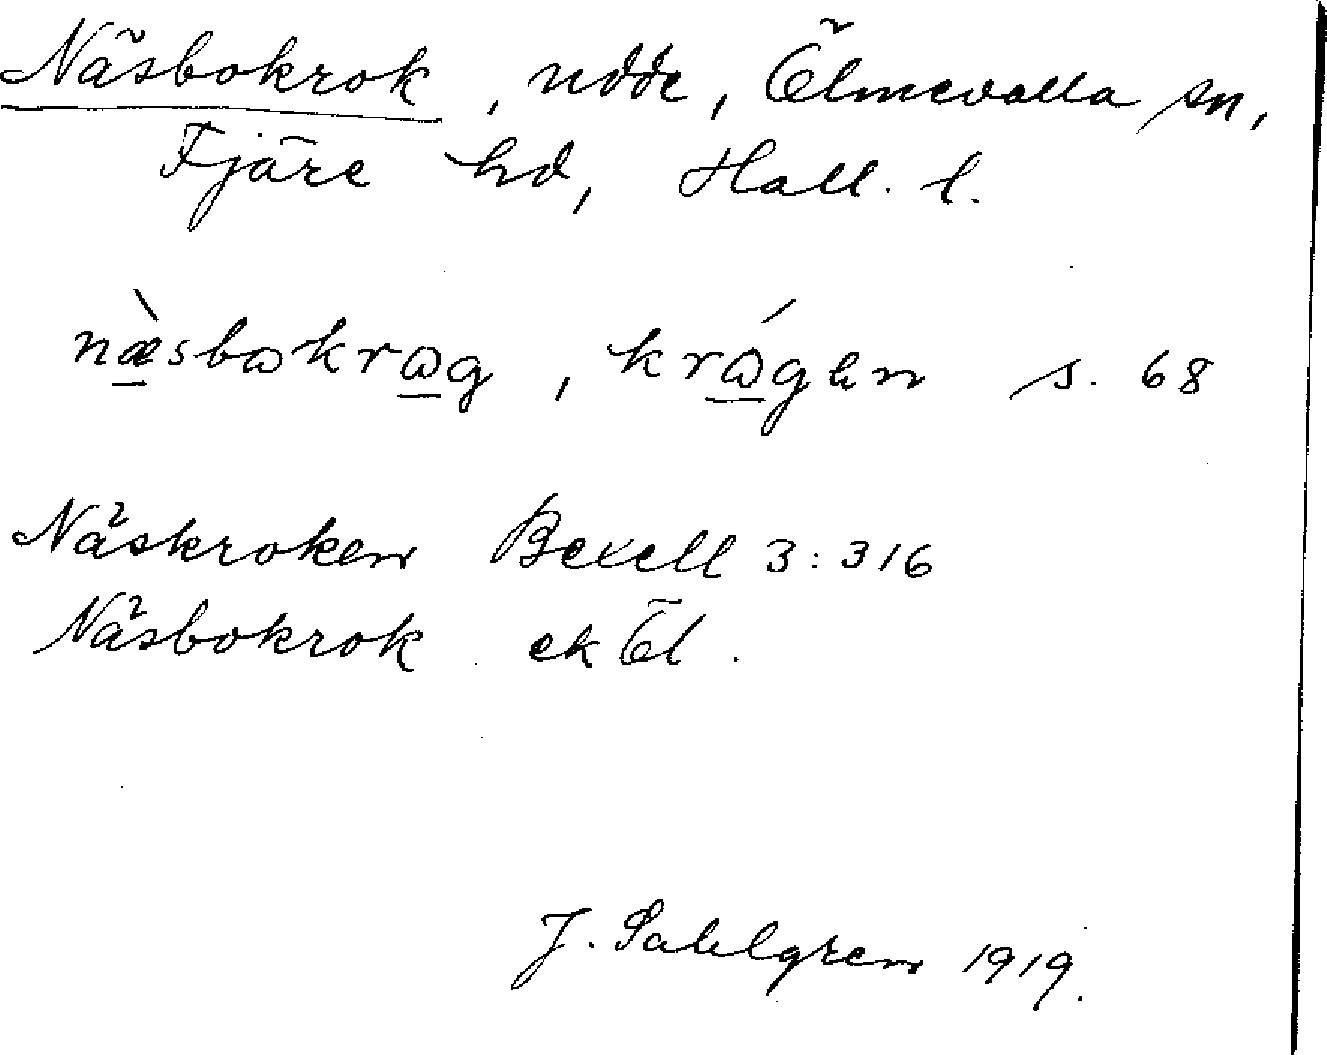 Näsbokrok, udde, Ölmevalla sn,
Fjäre hd, Hall. l.
næ̀sbɷkrɷg, krɷ́gen s. 68
Näskroken Bexell 3:316
Näsbokrok ek Öl.
J. Sahlgren 1919.